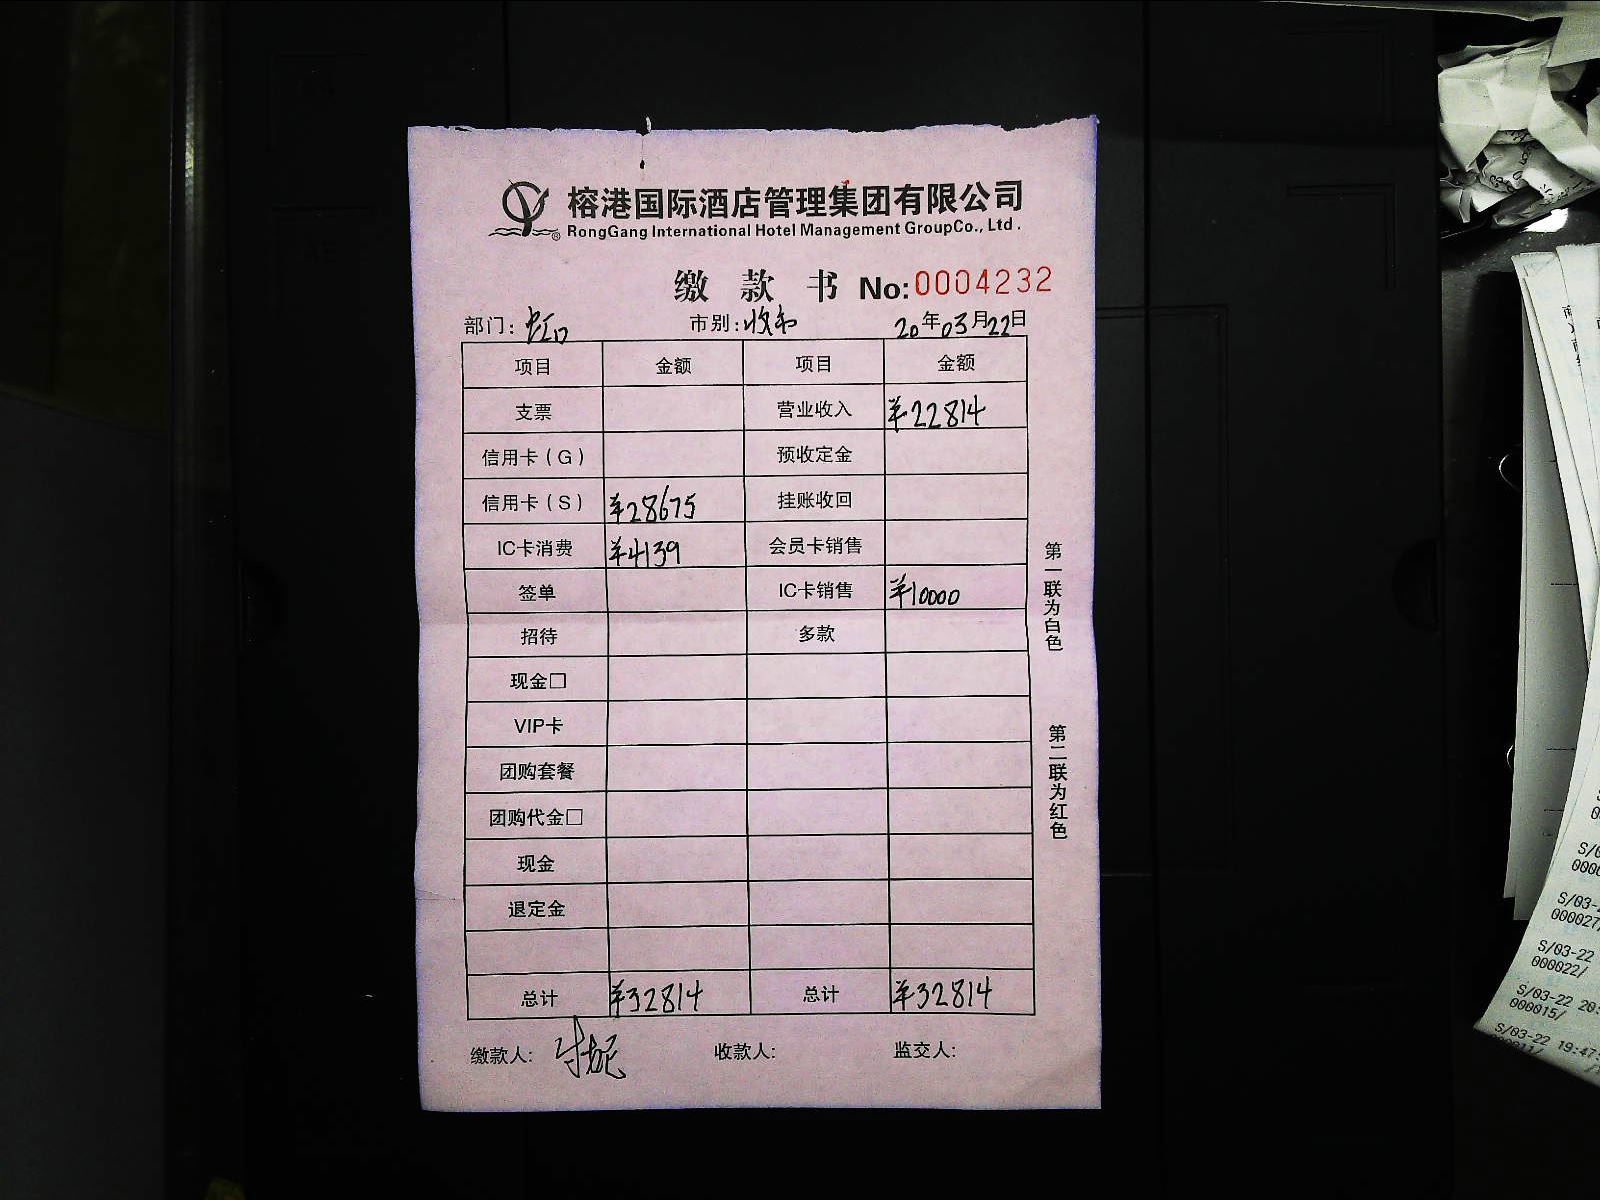 榕港国际酒店管理集团有限公司
RongGang International Hotel Management GroupCo., Ltd.
缴款书 No:0004232
部门：虹口 市别：收市 20年03月22日
项目 金额 项目 金额
支票 营业收入 ¥22814
信用卡（G） 预收定金
信用卡（S） ¥28675 挂账收回
IC卡消费 ¥4139 会员卡销售
签单 IC卡销售 ¥10000
招待 多款
现金□
VIP卡
团购套餐
团购代金□
现金
退定金
总计 ¥32814 总计 ¥32814
缴款人: 收款人: 监交人:
第一联为白色
第二联为红色
S/03-22
000022/
S/03-22 20:
000015/
S/03-22 19:47: